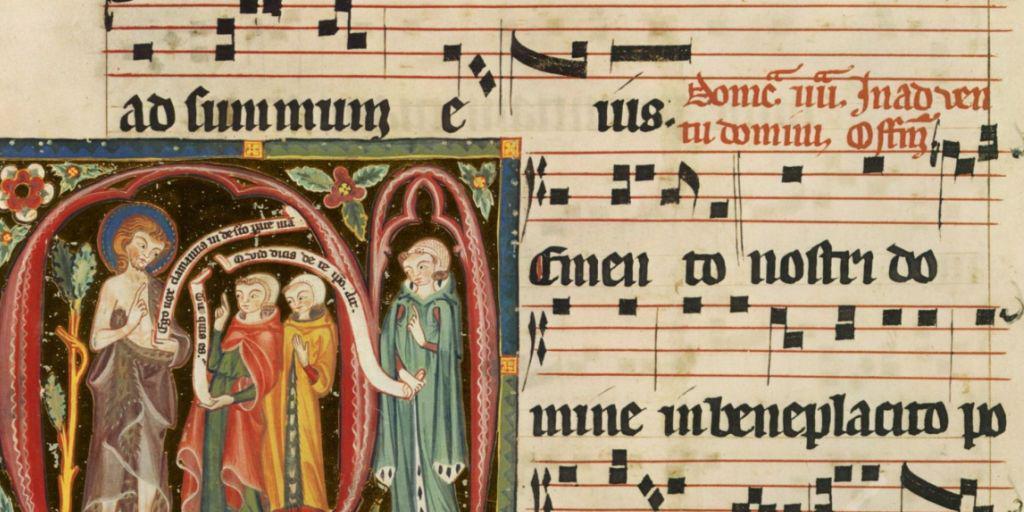 ad summum e ius.
Domc. iiii. In aduen
tu domini, Offm
Emen to nostri do
mine in beneplacito po
Ego uox clamantis in desto pate uia
Quid dicis de te ipo.
Tu quis es.